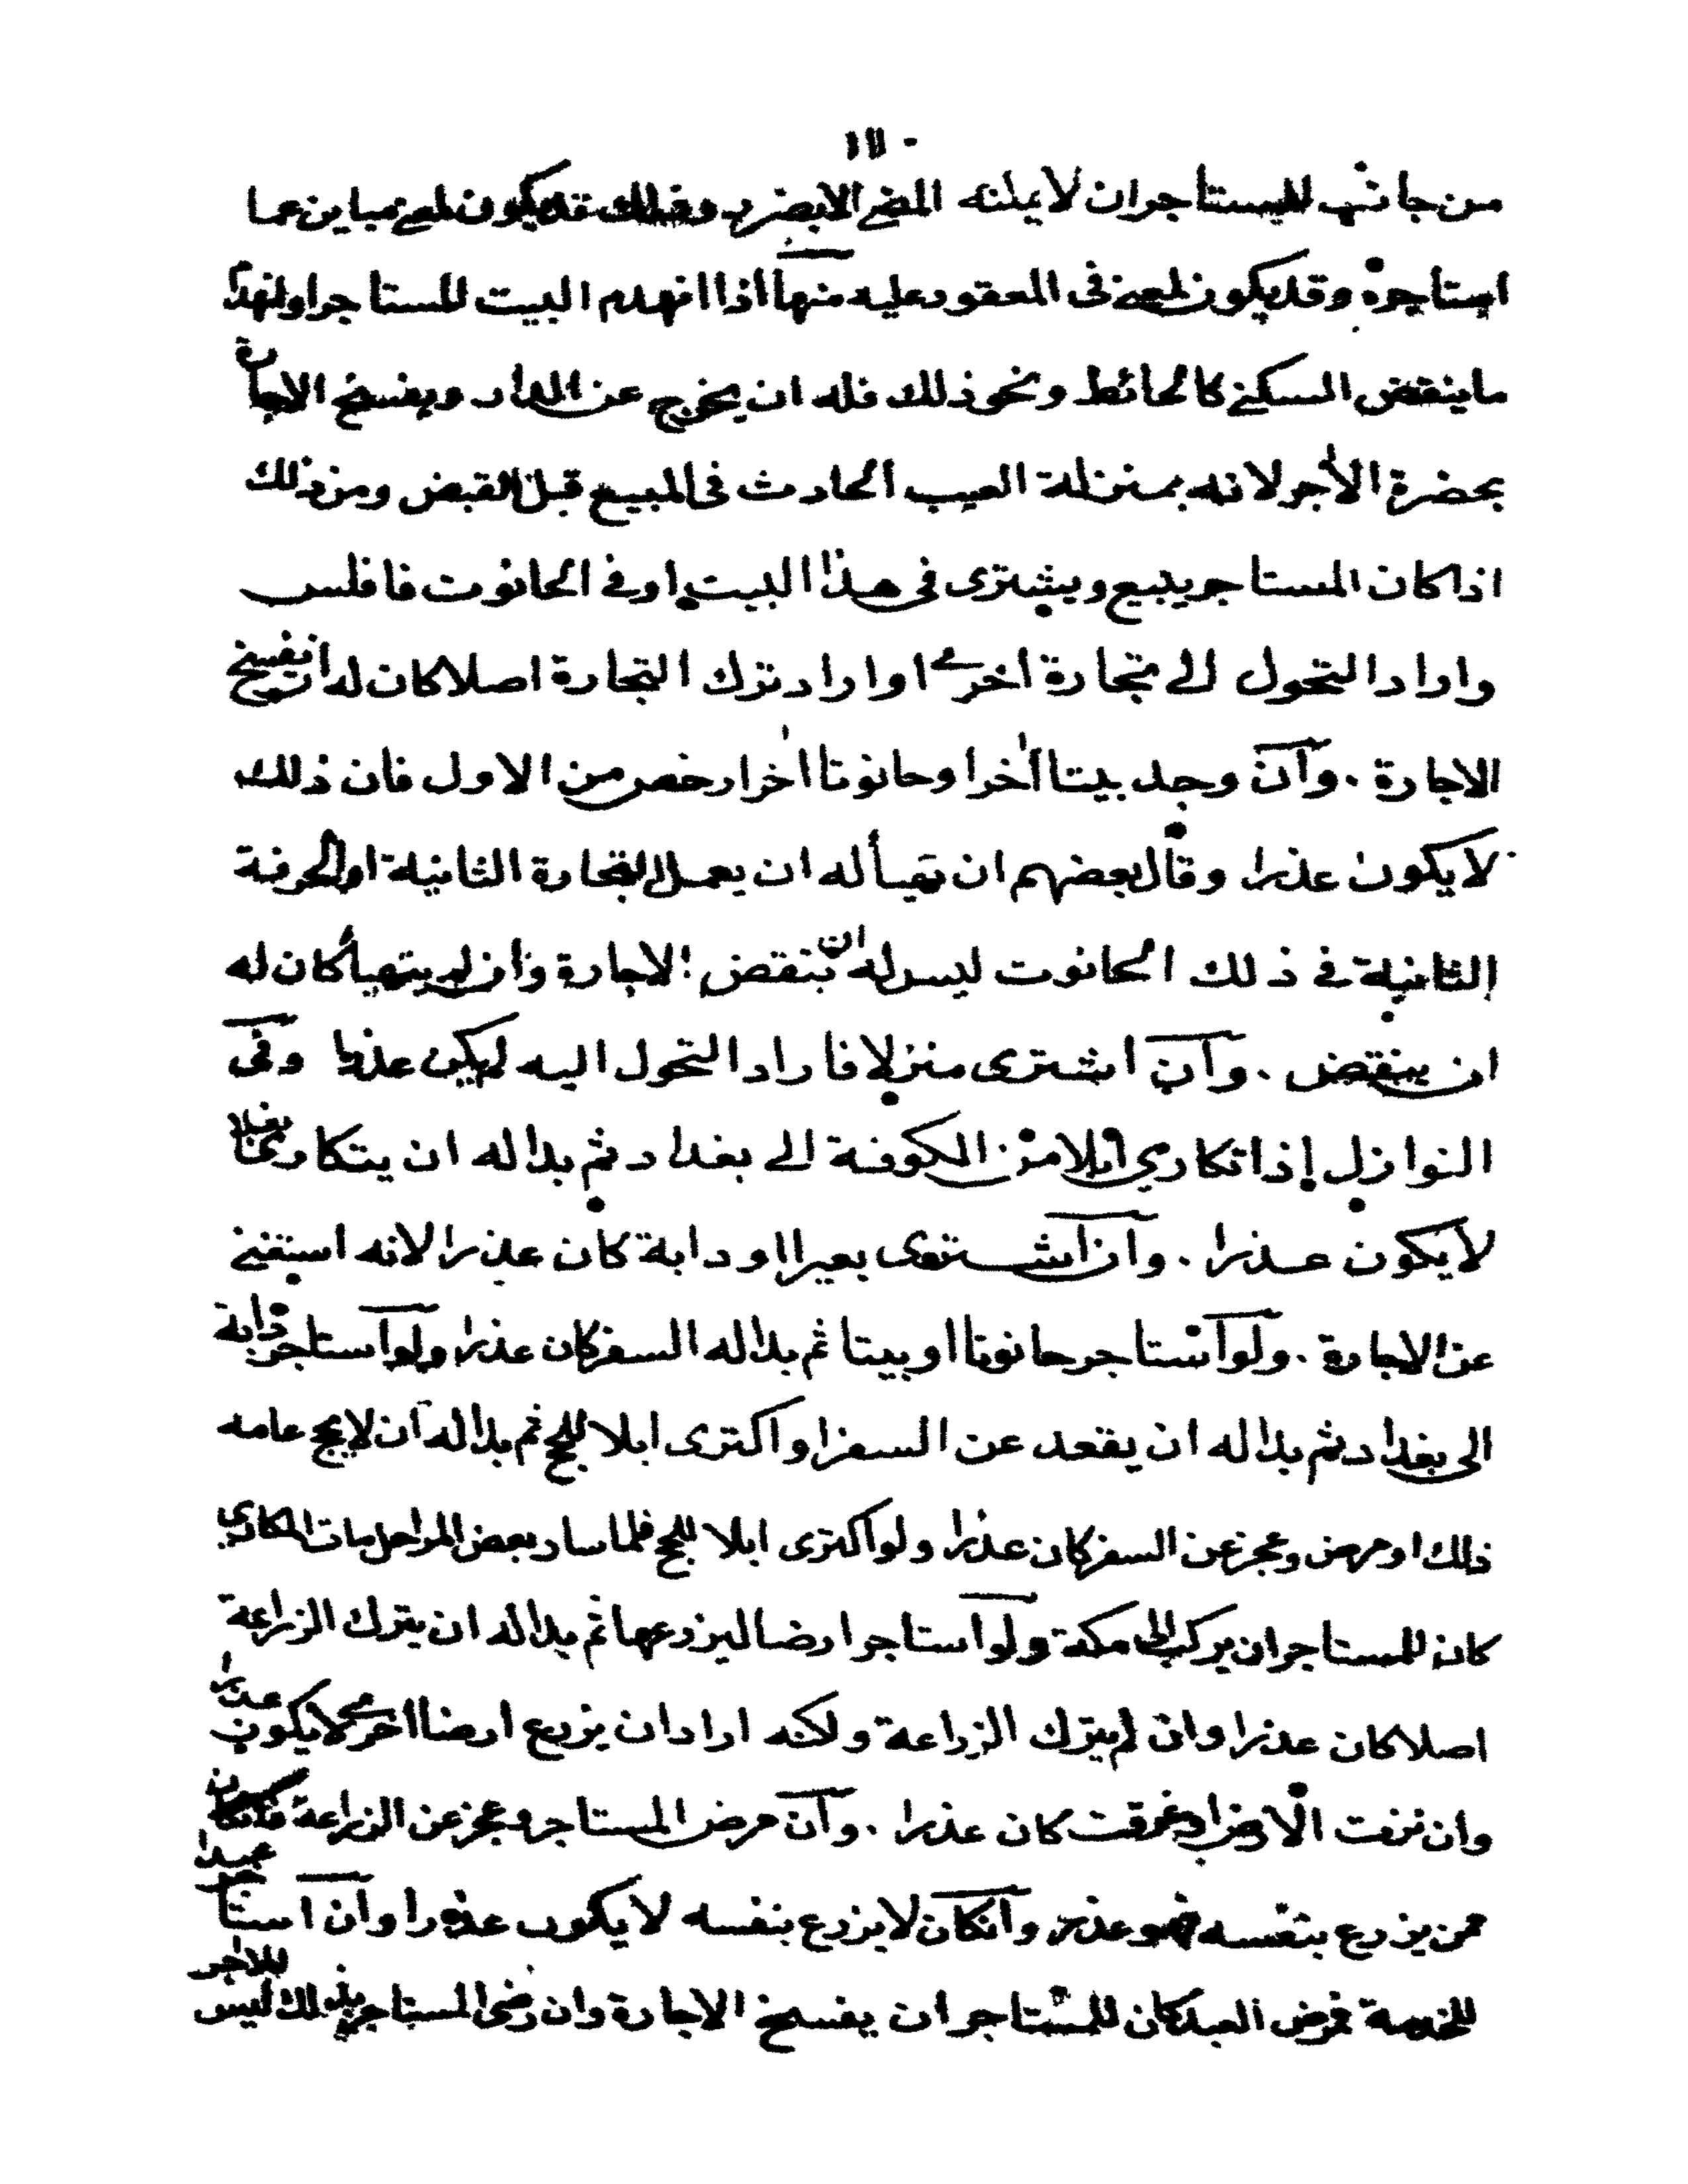 من جانب المستاجر ان لا يمكنه المضي الا بضرر وذلك قد يكون لمعنى مباين عما
استاجره وقد يكون لمعنى فى المعقود عليه منها اذا انهدم البيت المستاجر او انهدم
ما ينقض السكنى كالحائط ونحو ذلك فله ان يخرج عن الدار ويفسخ الاجارة
بحضرة الآجر لانه بمنزلة العيب الحادث فى المبيع قبل القبض ومن ذلك
اذا كان المستاجر يبيع ويشترى فى هذا البيت او فى الحانوت فافلس
واراد التحول الى تجارة اخرى او اراد ترك التجارة اصلا كان له
الاجارة . وان وجد بيتا اخر او حانوتا اخر ارخص من الاول فان ذلك
لا يكون عذرا وقال بعضهم ان تهيأ له ان يعمل التجارة الثانية او الحرفة
الثانية فى ذلك الحانوت ليس له ان ينقض الاجارة وان لم يتهيأ كان له
ان ينقض . وان اشترى منزلا فاراد التحول اليه لم يكن عذرا وفى
النوازل إذا تكارى ابلا من الكوفة الى بغداد ثم بدا له ان يتكارى بغلا
لا يكون عذرا . وان اشترى بعيرا او دابة كان عذرا لانه استغنى
عن الاجارة . ولو استاجر حانوتا او بيتا ثم بدا له السفر كان عذرا ولو استاجر دابة
الى بغداد ثم بدا له ان يقعد عن السفر او اكترى ابلا للحج ثم بدا له ان لا يحج عامه
ذلك او مرض وعجز عن السفر كان عذرا ولو اكترى ابلا للحج فلما سار بعض المراحل مات المكارى
كان للمستاجر ان يركب الى مكة ولو استاجر ارضا ليزرعها ثم بدا له ان يترك الزراعة
اصلا كان عذرا وان لم يترك الزراعة ولكنه اراد ان يزرع ارضا اخرى لا يكون عذرا
وان نزفت الارض او غرقت كان عذرا . وان مرض المستاجر وعجز عن الزراعة فان كان
ممن يزرع بنفسه فهو عذر وان كان لا يزرع بنفسه لا يكون عذرا وان استاجر عبدا
للخدمة فمرض العبد كان للمستاجر ان يفسخ الاجارة وان رضى المستاجر بذلك ليس للآجر